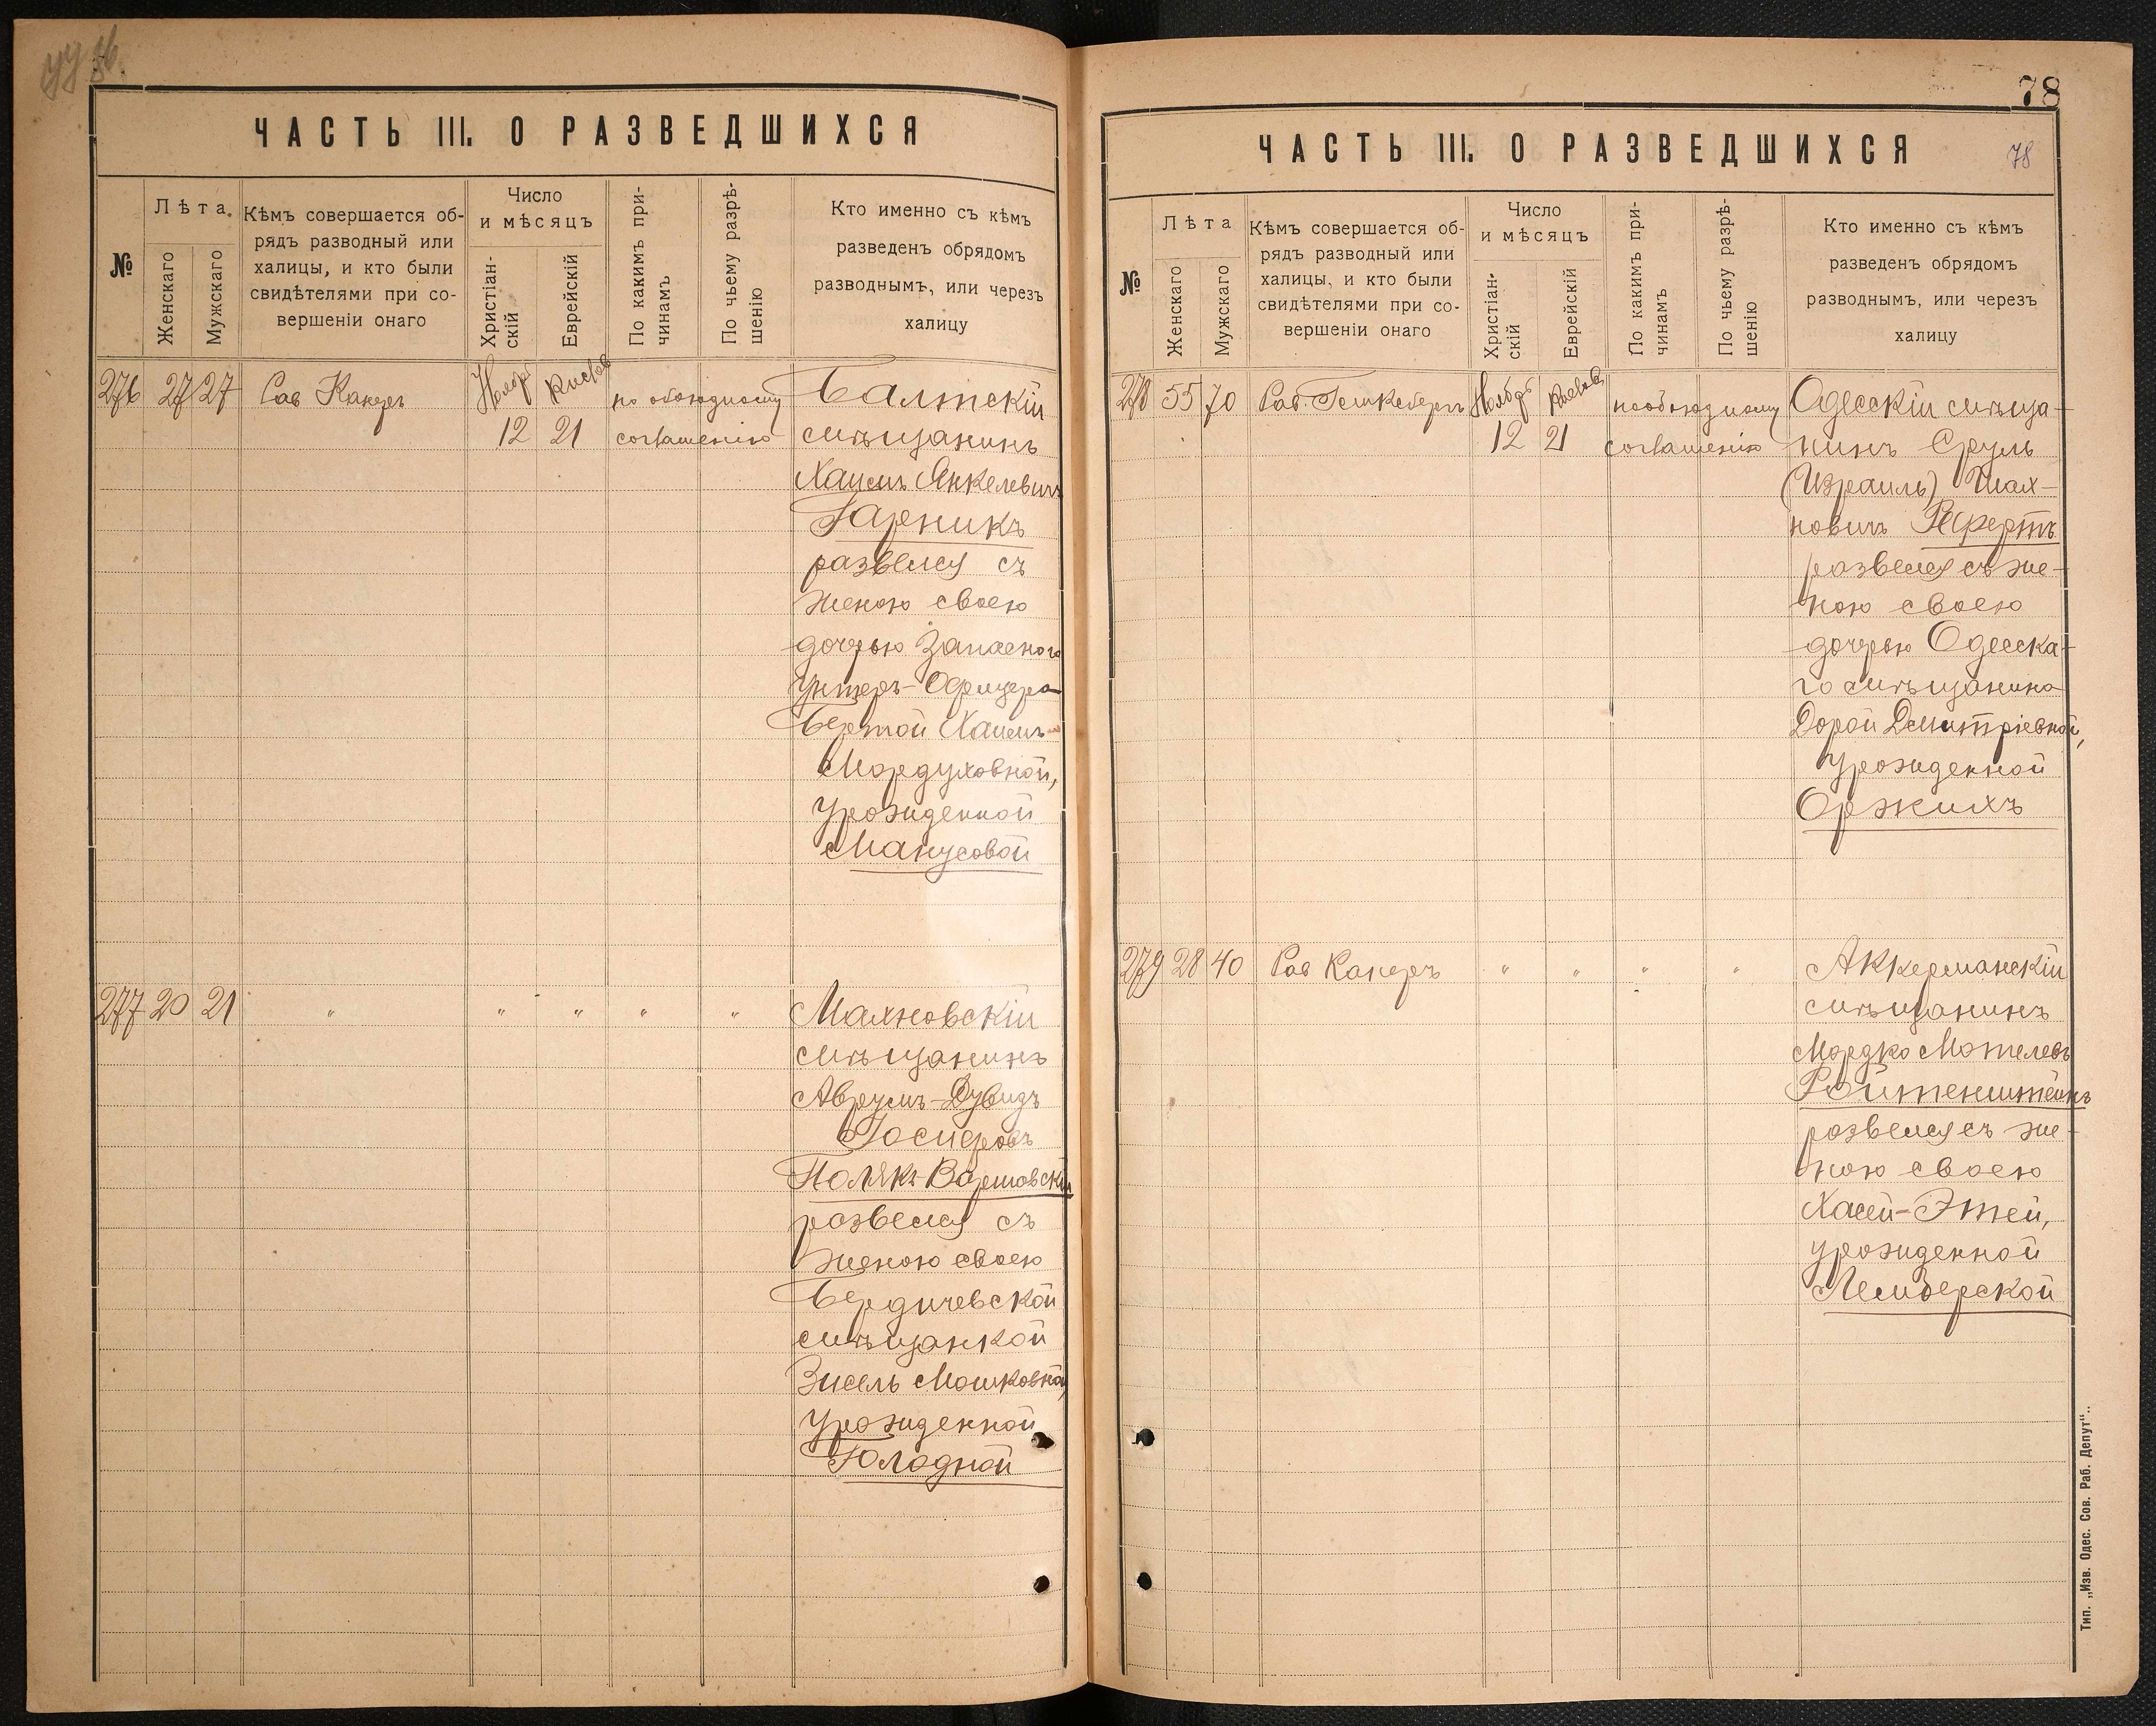 ЧАСТЬ III. О РАЗВЕДШИХСЯ
№
Лѣта.
Женскаго
Мужскаго
Кѣмъ совершается об-
рядъ разводный или
халицы, и кто были
свидѣтелями при со-
вершеніи онаго
Число
и мѣсяцъ
Христіан-
скій
Еврейскій
По какимъ при-
чинамъ
По чьему разрѣ-
шенію
Кто именно съ кѣмъ
разведенъ обрядомъ
разводнымъ, или черезъ
халицу
276 27 27 Рав Канеръ Ноября 12 Кислев 21 по обоюдному
соглашенію
Балтскій
мѣщанинъ
Хаимъ Янкелевичъ
Гарникъ
развелся съ
женою своею
дочерью Запасного
Унтеръ-Офицера
Бертой Хаимъ-
Мордуховной,
урожденной
Манусовой
277 20 21 " " " " "
Махновскій
мѣщанинъ
Аврумъ-Дувидъ
Поляк-Варшавскій
развелся съ
женою своею
Бердичевской
мѣщанкой
Зисель Мошковной,
урожденной
Голодной
78
ЧАСТЬ III. О РАЗВЕДШИХСЯ
78
№
Лѣта
Женскаго
Мужскаго
Кѣмъ совершается об-
рядъ разводный или
халицы, и кто были
свидѣтелями при со-
вершеніи онаго
Число
и мѣсяцъ
Христіан-
скій
Еврейскій
По какимъ при-
чинамъ
По чьему разрѣ-
шенію
Кто именно съ кѣмъ
разведенъ обрядомъ
разводнымъ, или черезъ
халицу
278 55 70 Рав. Ноябр 12 Кислев 21 по обоюдному
соглашенію
Одесскій мѣща-
нинъ Сруль
(Израиль) Шах-
новичъ
развелся съ же-
ною своею
дочерью Одесска-
го мѣщанина
Дорой Дмитріевной,
урожденной
Оржихъ
279 28 40 Рав Канеръ " " " "
Аккерманскій
мѣщанинъ
Мордко Мотелевъ
Ройтенштейнъ
развелся съ же-
ною своею
Хасей-Этей,
урожденной
Лемберской
Тип. „Изв. Одес. Сов. Раб. Депут“..